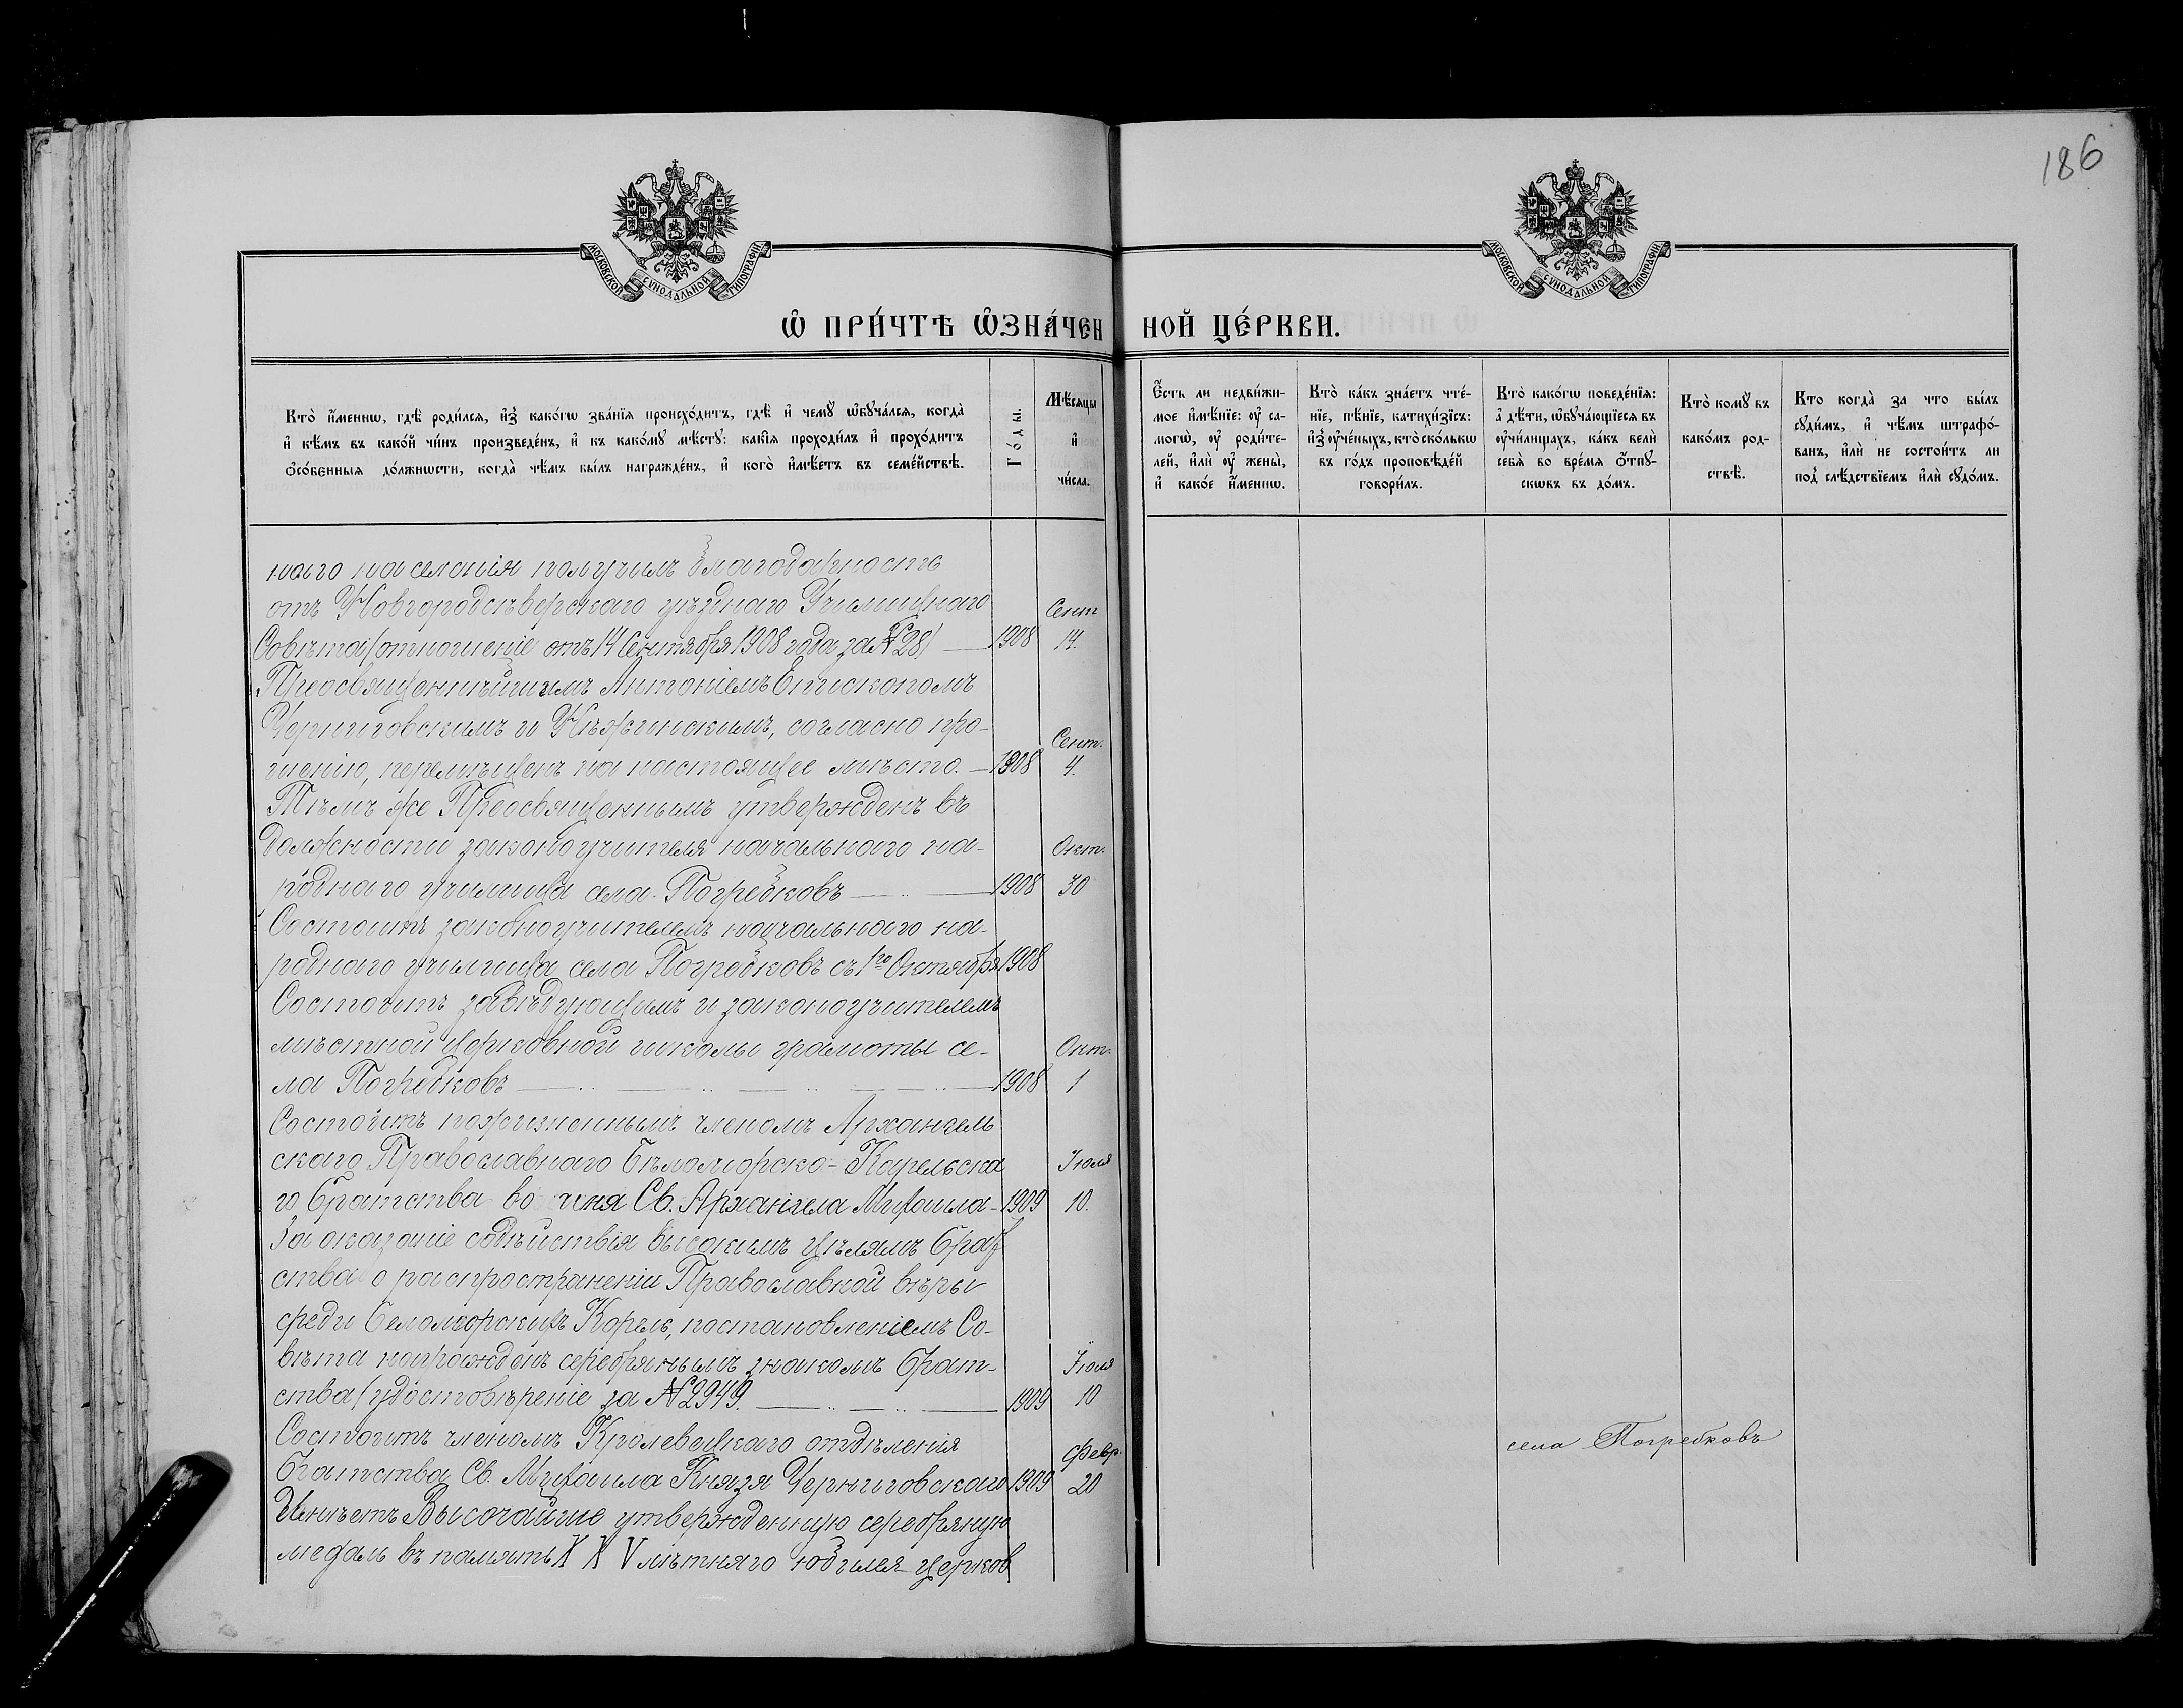 186
МОСКОВСКОЙ СУНОДАЛЬНОЙ ТИПОГРАФІИ
МОСКОВСКОЙ СУНОДАЛЬНОЙ ТИПОГРАФІИ
Ѡ ПРИ́ЧТѢ ѠЗНА́ЧЕННОЙ ЦЕ́РКВИ.
Кто̀ и҆́меннѡ, гдѣ̀ роди́лсѧ, и҆з̾ како́гѡ зва́нїѧ происхо́дитъ, гдѣ̀ и҆ чемꙋ̀ ѡ҆бꙋча́лсѧ, когда̀
и҆ кѣ́мъ въ како́й чи́нъ произведе́нъ, и҆ къ како́мꙋ мѣ́стꙋ: какі̑ѧ проходи́лъ и҆ прохо́дитъ
ѻ҆со́бенныѧ до́лжнѡсти, когда̀ чѣ́мъ бы́лъ награжде́нъ, и҆ кого̀ и҆мѣ́етъ въ семе́йствѣ.
Го́ды.
Мѣ́сѧцы
и҆
чи́сла.
Е҆́сть ли недви́жи-
мое и҆мѣ́нїе: ᲂу҆ са-
могѡ̀, ᲂу҆ роди́те-
лей, и҆лѝ ᲂу҆ жены̀,
и҆ како́е и҆́меннѡ.
Кто̀ ка́къ зна́етъ чте́-
нїе, пѣ́нїе, катихи́зїсъ:
и҆з̾ ᲂу҆че́ныхъ, кто̀ ско́лькѡ
въ го́дъ проповѣ́дей
говори́лъ.
Кто̀ како́гѡ поведе́нїѧ:
а҆ дѣ́ти, ѡ҆бꙋча́ющїесѧ въ
ᲂу҆чи́лищахъ, ка́къ велѝ
себѧ̀ во вре́мѧ ѻ҆́тпꙋ-
скѡвъ въ до́мъ.
Кто̀ комꙋ̀ въ
како́мъ род-
ствѣ̀.
Кто когда̀ за что бы́лъ
сꙋди́мъ, и҆ чѣ́мъ штрафо́-
ванъ, и҆лѝ не состои́тъ ли
под̾ слѣ́дствїемъ и҆лѝ сꙋдо́мъ.
наго населенія получилъ благодарность
отъ Новгородсѣверскаго уѣзднаго Училищнаго
Совѣта (отношеніе отъ 14 Сентября 1908 года за №28) 1908 Сент 14.
Преосвященнѣйшимъ Антоніемъ Епископомъ
Черниговскимъ и Нѣжинскимъ, согласно про-
шенію, перемѣщенъ на настоящее мѣсто. 1908 Сент. 4.
Тѣмъ же Преосвященнымъ утвержденъ въ
должности законоучителя начальнаго на-
роднаго училища села Погребковъ 1908 Окт. 30
Состоитъ законоучителемъ начальнаго на-
роднаго училища села Погребковъ съ 1го Октября 1908
Состоитъ завѣдующимъ и законоучителемъ
мѣстной церковной школы грамоты се-
ла Погребковъ 1908 Окт. 1
Состоитъ пожизненнымъ членомъ Архангель
скаго Православнаго Бѣломорско-Карельска
го Братства во имя Св. Архангела Михаила 1909 Іюля 10.
За оказаніе содѣйствія высокимъ цѣлямъ Брат
ства о распространеніи Православной вѣры
среди Беломорскихъ Корелъ, постановленіемъ Со-
вѣта награжденъ серебрянымъ знакомъ Брат-
ства (удостовѣреніе за №2949. 1909 Іюля 10
Состоитъ членомъ Кролевецкаго отдѣленія
Братства Св. Михаила Князя Черниговскаго 1909 Февр. 20
Имѣетъ Высочайше утвержденную серебряную
медаль въ память XXV лѣтняго юбилея церков
села Погребковъ